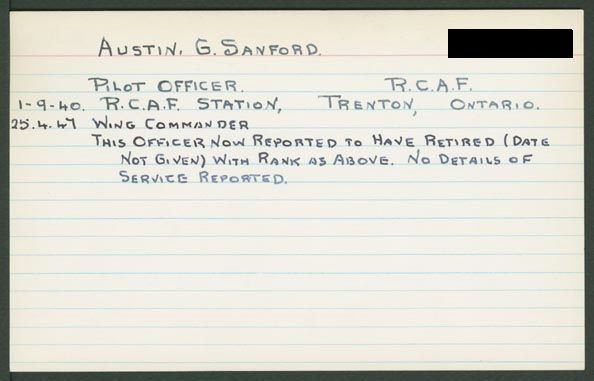 AUSTIN, G. SANFORD.
PILOT OFFICER. R.C.A.F.
1-9-40. R.C.A.F. STATION, TRENTON, ONTARIO.
25.4.47 WING COMMANDER
THIS OFFICER NOW REPORTED TO HAVE RETIRED (DATE
NOT GIVEN) WITH RANK AS ABOVE. NO DETAILS OF
SERVICE REPORTED.